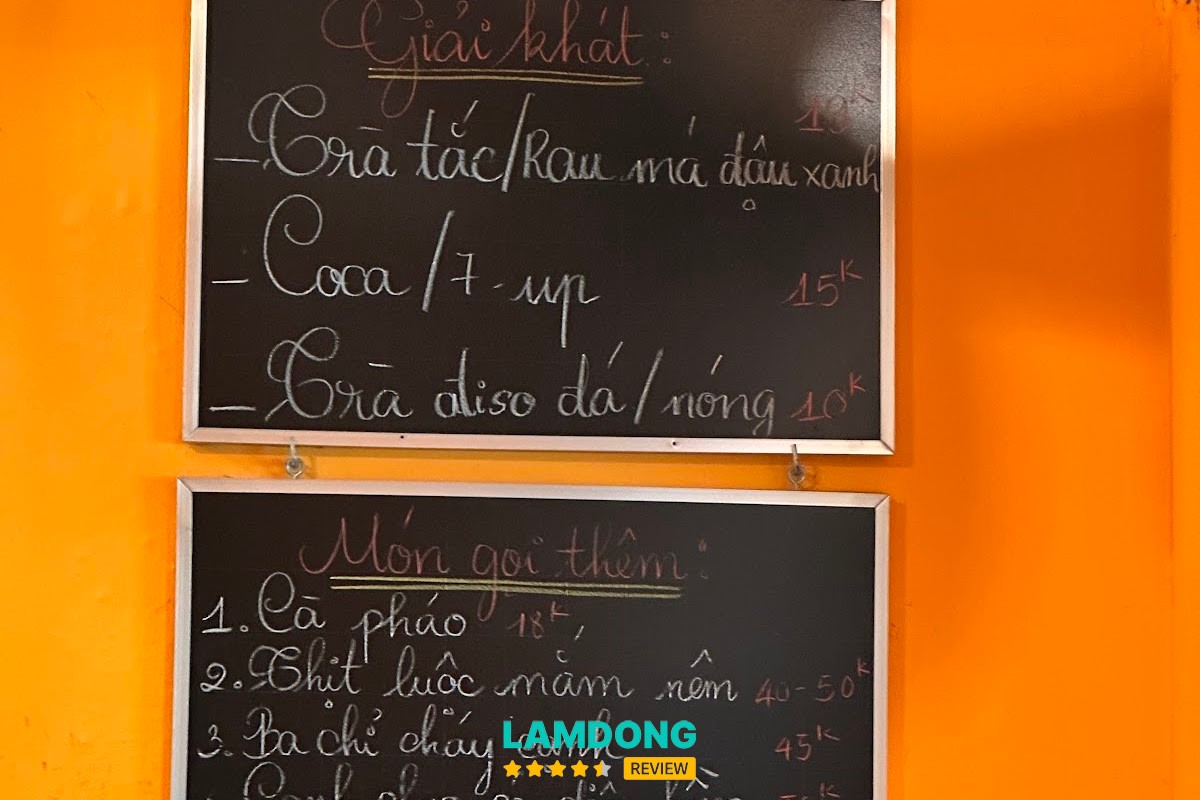 Giải khát:
19K
- Trà tắc/Rau má đậu xanh
- Coca/7-up 15K
- Trà atiso đá/nóng 10K
Món gọi thêm:
1. Cà pháo 18K
2. Thịt luộc mắm nêm 40-50K
3. Ba chỉ cháy cạnh 45K
LAMDONG
REVIEW